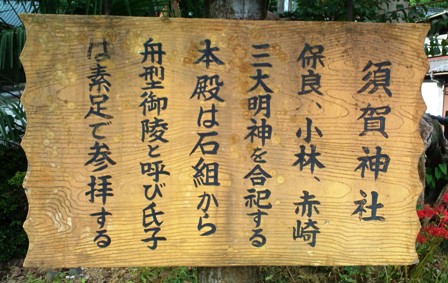 須賀神社
保良、小林、赤崎
三大明神を合祀する
本殿は石組から
舟型御陵と呼び氏子
は素足で参拝する